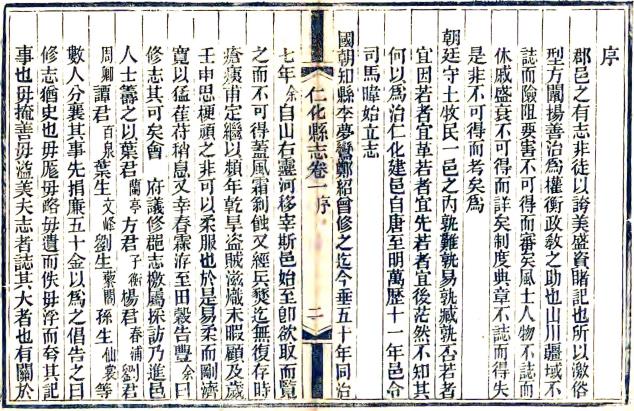 序
郡邑之有志非徒以誇美盛資賭記也所以激俗
型方闡揚善治為權衡政教之助也山川疆域不
誌而險阻要害不可得而審矣風土人物不誌而
休戚盛衰不可得而詳矣制度典章不誌而得失
是非不可得而考矣為
朝廷守土牧民一邑之內孰難孰易孰臧孰否若者
宜因若者宜革若者宜先若者宜後茫然不知其
何以為治仁化建邑自唐至明萬歷十一年邑令
司馬暐始立志
國朝知縣李夢鸞鄭紹曾修之迄今垂五十年同治
仁化縣志卷一 序 二
七年余自山右靈河移宰斯邑始至卽欲取而覽
之而不可得蓋風霜剝蝕又經兵燹迄無復存時
瘡痍甫定繼以頻年乾旱盜賊滋熾未暇顧及歲
壬申思梗頑之非可以柔服也於是易柔而剛濟
寬以猛萑苻稍息又幸春霖洊至田穀告豐余曰
修志其可矣會 府議修郡志檄屬採訪乃進邑
人士籌之以葉君蘭亭方君子衡楊君春浦劉君
周卿譚君百泉葉生文峰劉生藜閣孫生仙裳等
數人分襄其事先捐廉五十金以為之倡告之曰
修志猶史也毋濫毋略毋遺而佚毋浮而夸其記
事也毋掩善毋溢美夫志者誌其大者也有關於